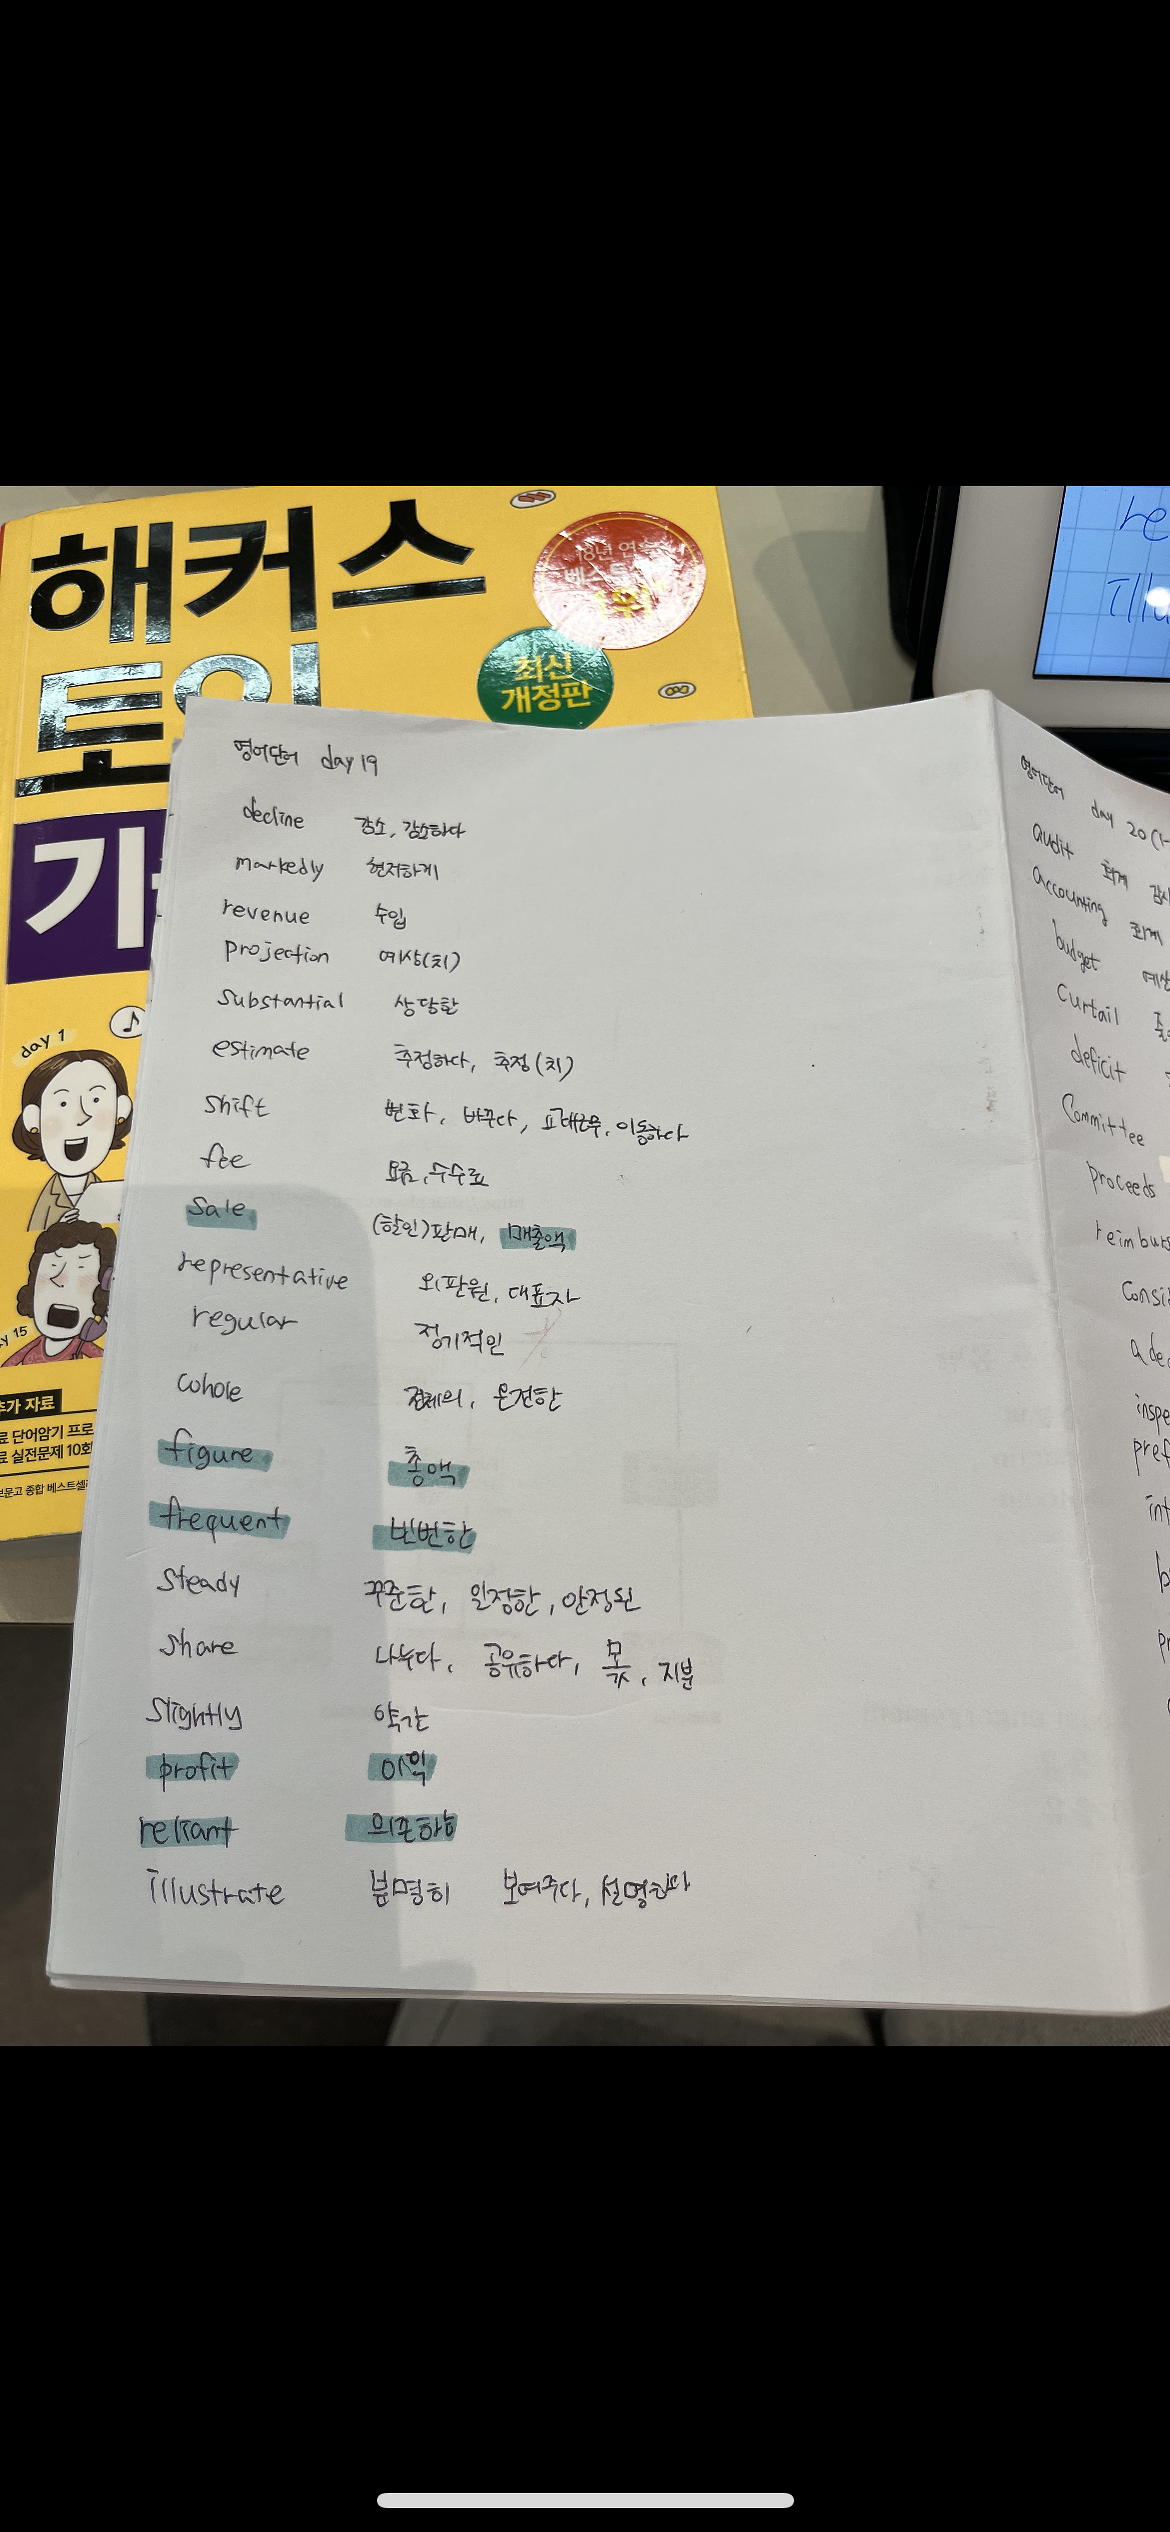 해커스
토익
기
18년 연속
베스트셀러
1위
최신
개정판
day 1
y 15
추가 자료
료 단어암기 프로
료 실전문제 10회
보문고 종합 베스트셀
re
illu
영어단어 day 19
decline 감소, 감소하다
markedly 현저하게
revenue 수입
projection 예상(치)
substantial 상당한
estimate 추정하다, 추정(치)
shift 변화, 바꾸다, 교대근무, 이동하다
fee 요금, 수수료
sale (할인)판매, 매출액
representative 외판원, 대표자
regular 정기적인
whole 전체의, 온전한
figure 총액
frequent 빈번한
steady 꾸준한, 일정한, 안정된
share 나누다, 공유하다, 몫, 지분
slightly 약간
profit 이익
reliant 의존하는
illustrate 분명히 보여주다, 설명하다
영어단어 day 20 (1-
audit 회계 감사
accounting 회계
budget 예산
curtail 줄
deficit
committee
proceeds
reimburs
consi
a dec
inspe
pref
int
b
pr